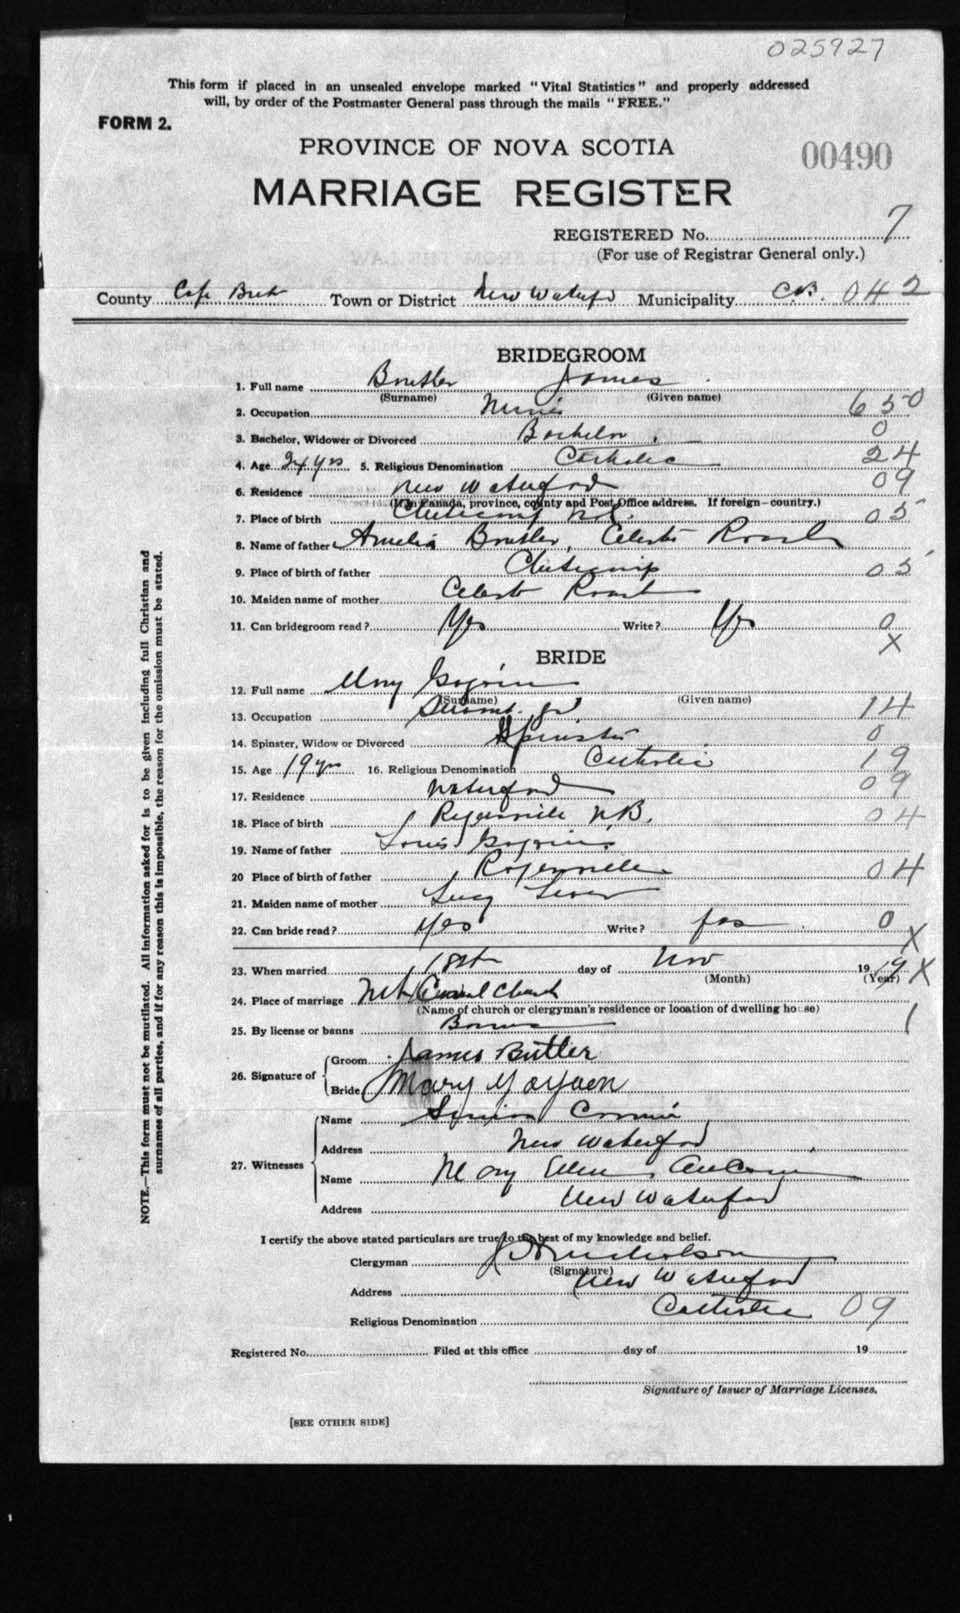 025927
This form if placed in an unsealed envelope marked "Vital Statistics" and properly addressed
will, by order of the Postmaster General pass through the mails "FREE."
FORM 2.
PROVINCE OF NOVA SCOTIA
00490
MARRIAGE REGISTER
REGISTERED No. 7
(For use of Registrar General only.)
County Cape Bret Town or District New Waterford Municipality C.B. 042
BRIDEGROOM
1. Full name Boutler James
(Surname) (Given name)
2. Occupation 650
3. Bachelor, Widower or Divorced Bachelor 0
4. Age 24 yrs 5. Religious Denomination Catholic 24
6. Residence New Waterford 09
(If in Canada, province, county and Post Office address. If foreign—country.)
7. Place of birth Cheticamp 05
8. Name of father Boutler, Celeste
9. Place of birth of father Cheticamp 05
10. Maiden name of mother Celeste
11. Can bridegroom read? Yes Write? Yes 0
X
BRIDE
12. Full name Mary
(Surname) (Given name)
13. Occupation 14
14. Spinster, Widow or Divorced Spinster 0
15. Age 19 yrs 16. Religious Denomination Catholic 19
17. Residence Waterford 09
18. Place of birth Rogersville N.B. 04
19. Name of father Louis
20 Place of birth of father Rogersville 04
21. Maiden name of mother Lucy
22. Can bride read? Yes Write? Yes 0
X
23. When married 18th day of Nov 1919 X
(Month) (Year)
24. Place of marriage Mt Carmel Church
(Name of church or clergyman's residence or location of dwelling house)
25. By license or banns Banns 1
26. Signature of
Groom James Butler
Bride Mary
27. Witnesses
Name Cormier
Address New Waterford
Name Mary Ellen
Address New Waterford
I certify the above stated particulars are true to the best of my knowledge and belief.
Clergyman J. H. Nicholson
(Signature)
Address New Waterford
Religious Denomination Catholic 09
Registered No. Filed at this office day of 19
Signature of Issuer of Marriage Licenses.
[SEE OTHER SIDE]
NOTE.—This form must not be mutilated. All information asked for is to be given including full Christian and
surnames of all parties, and if for any reason this is impossible, the reason for the omission must be stated.